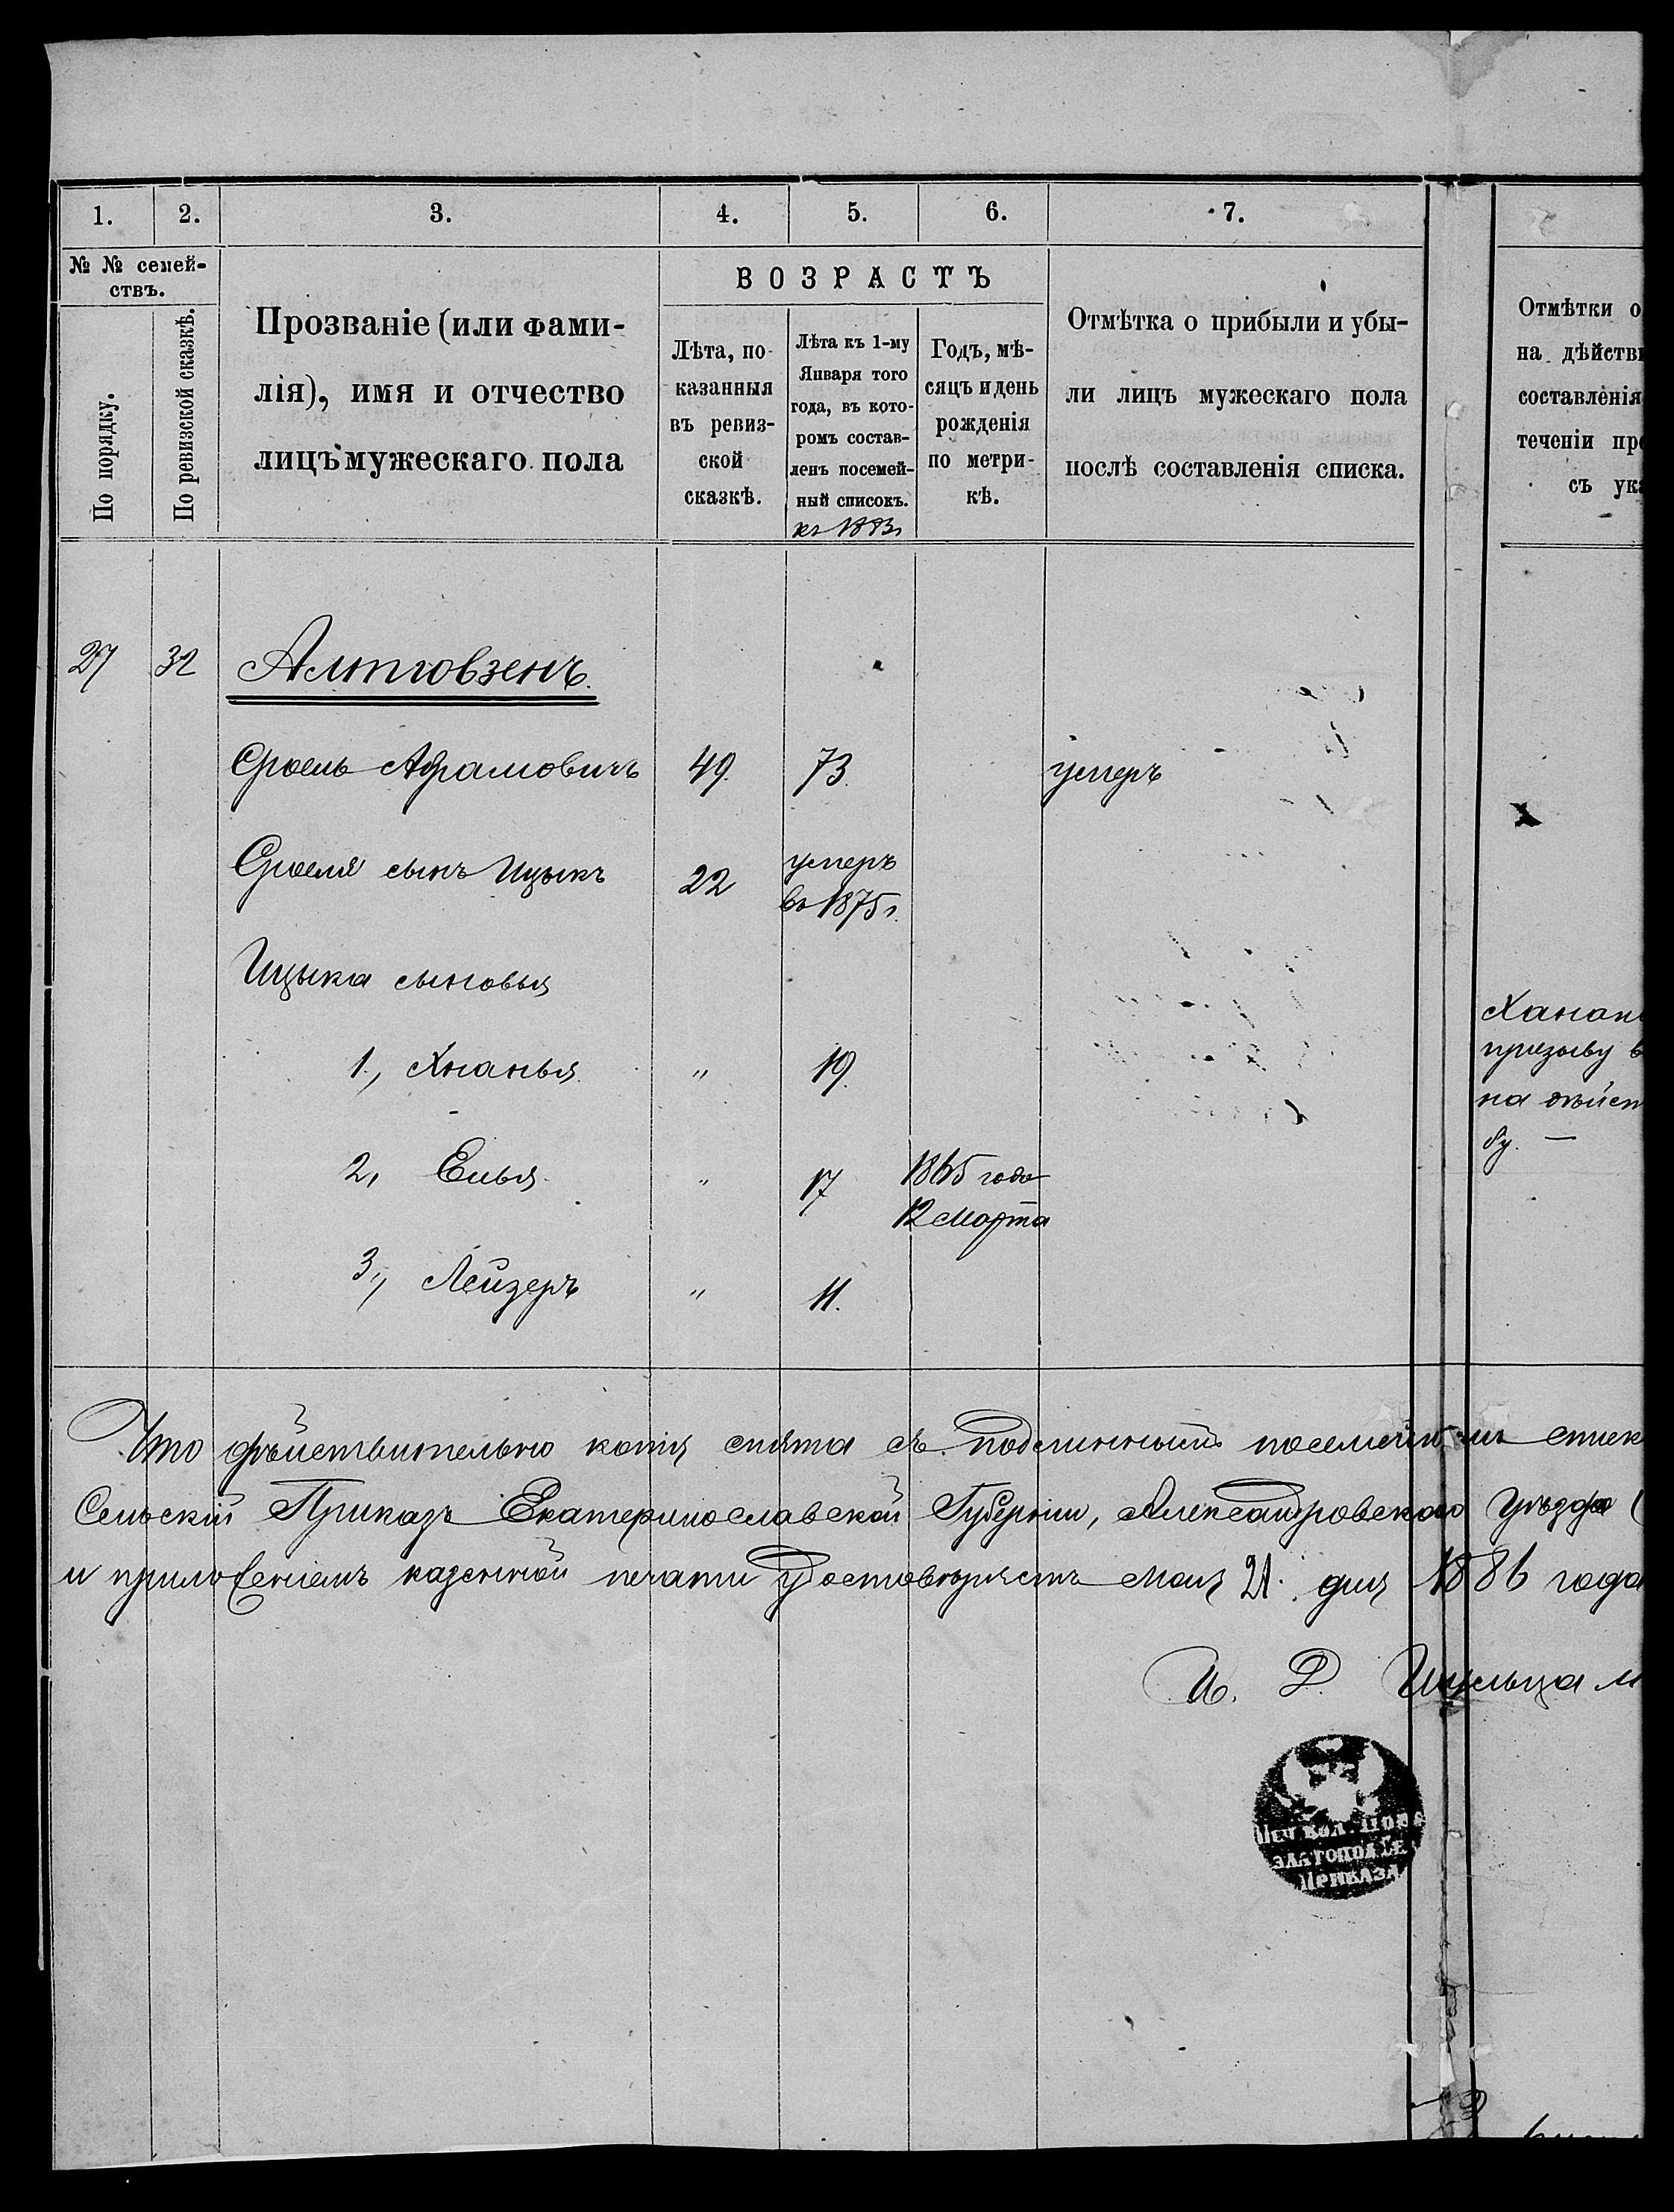 1. 2. 3. 4. 5. 6. 7.
№ № семей-
ствъ.
По порядку.
По ревизской сказкѣ.
Прозваніе (или фами-
лія), имя и отчество
лицъ мужескаго пола
ВОЗРАСТЪ
Лѣта, по-
казанныя
въ ревиз-
ской
сказкѣ.
Лѣта къ 1-му
Января того
года, въ кото-
ромъ состав-
ленъ посемей-
ный списокъ.
къ 1883г
Годъ, мѣ-
сяцъ и день
рожденія
по метри-
кѣ.
Отмѣтка о прибыли и убы-
ли лицъ мужескаго пола
послѣ составленія списка.
Отмѣтки о
на дѣйстви
составленія
теченіи пре
съ ука
27 32 Алтговзенъ
Сроель Абрамовичъ 49. 73. умеръ
Сроеля сынъ Ицыкъ 22 умеръ
въ 1875г.
Ицыка сыновья
1., Хнанья " 19.
2, Елья " 17 1865 года
12 Марта
3., Лейзеръ " 11.
Ханан
призыву в
на дѣйст
бу. —
Что дѣйствительно копія снята съ подлинныхъ спис
Сельскій Приказъ Екатеринославской Губерніи, Александровскаго Уѣзда (
и приложеніемъ казенной печати удостовѣряетъ мая 21. дня 1886 года
И. Д. Шульца
ПЕЧ. КОЛ.
ЗЛАТОПОЛ СЕ
ПРИКАЗА